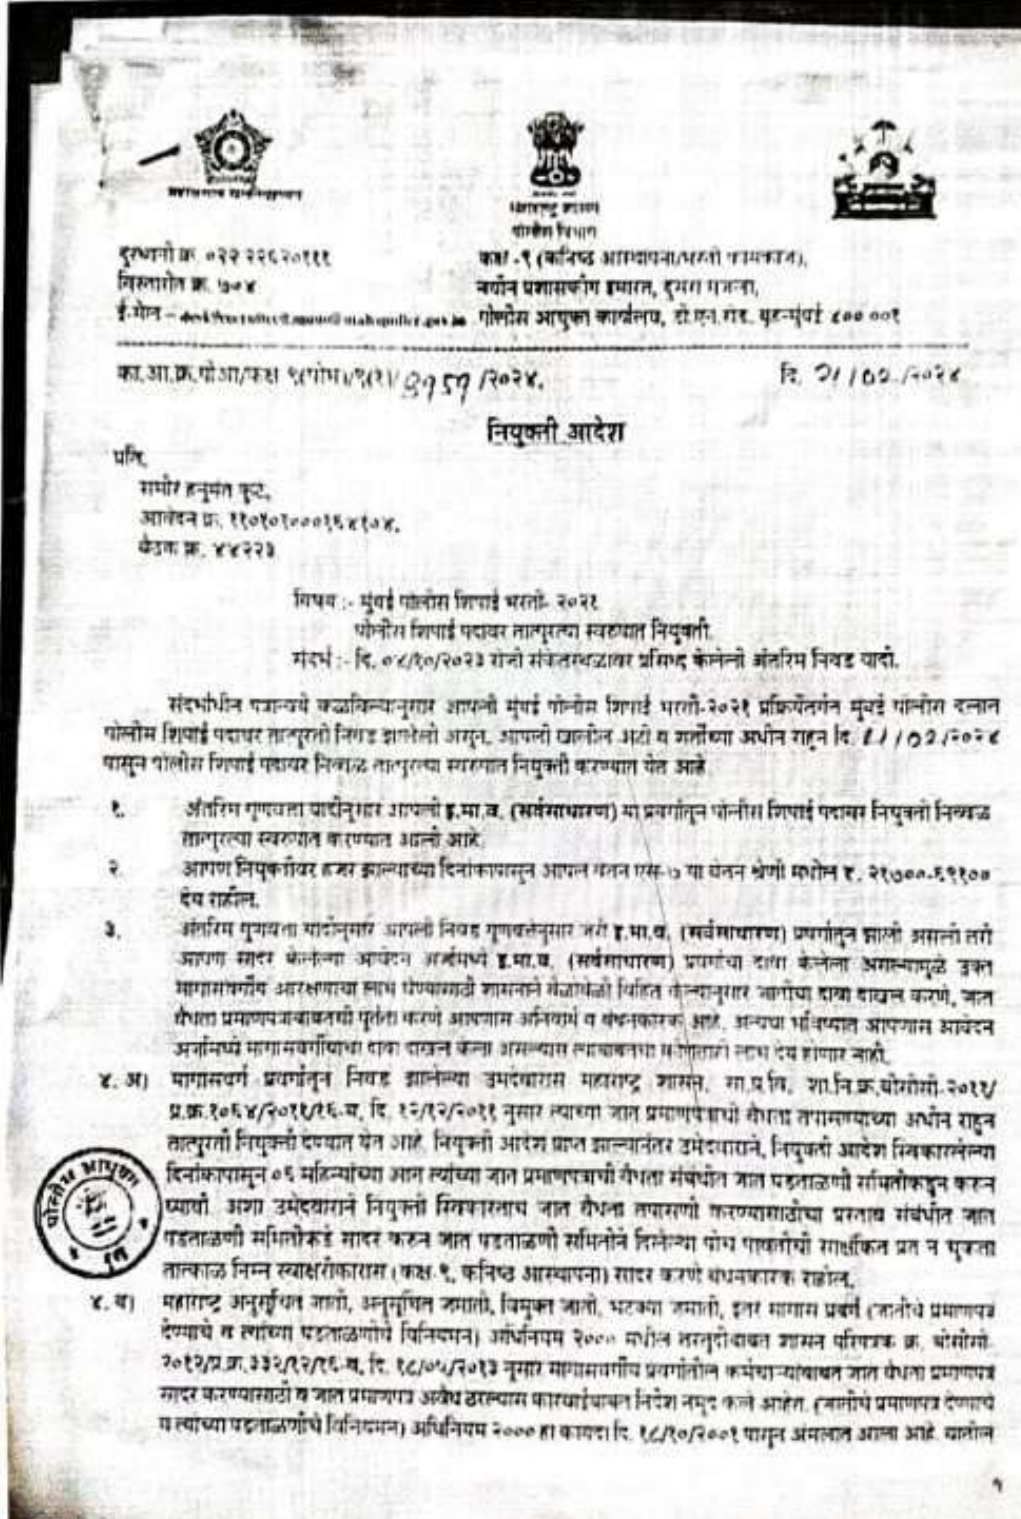 महाराष्ट्र शासन
पोलीस विभाग
दुरध्वनी क्र. ०२२ २२६२०१११
विस्तारीत क्र. ७०४
ई-मेल –
कक्ष -९ (कनिष्ठ आस्थापना/भरती कामकाज),
नवीन प्रशासकीय इमारत, दुसरा मजला,
पोलीस आयुक्त कार्यालय, डी.एन.रोड, बृहन्मुंबई ४०० ००१
का.आ.क्र.पोआ/कक्ष ९(पोभ)/९(१)/ /२०२४.
दि. २१/०२/२०२४
नियुक्ती आदेश
प्रति,
समीर हनुमंत कुट,
आवेदन क्र. ११०१०१०००१६४१०४,
बैठक क्र. ४४२२३
विषय :- मुंबई पोलीस शिपाई भरती- २०२१
पोलीस शिपाई पदावर तात्पुरत्या स्वरुपात नियुक्ती.
संदर्भ :- दि. ०४/१०/२०२३ रोजी संकेतस्थळावर प्रसिध्द केलेली अंतरिम निवड यादी.
संदर्भाधीन पत्रान्वये कळविल्यानुसार आपली मुंबई पोलीस शिपाई भरती-२०२१ प्रक्रियेतर्गन मुंबई पोलीस दलात
पोलीस शिपाई पदावर तात्पुरती निवड झालेली असून, आपली खालील अटी व शर्तीच्या अधीन राहून दि. /०२/२०२४
पासून पोलीस शिपाई पदावर निव्वळ तात्पुरत्या स्वरुपात नियुक्ती करण्यात येत आहे.
१. अंतरिम गुणवत्ता यादीनुसार आपली इ.मा.व. (सर्वसाधारण) या प्रवर्गातून पोलीस शिपाई पदावर नियुक्ती निव्वळ
तात्पुरत्या स्वरुपात करण्यात आली आहे.
२. आपण नियुक्तीवर हजर झाल्याच्या दिनांकापासून आपले वेतन एस-७ या वेतन श्रेणी मधील रु. २१७००-६९१००
देय राहील.
३. अंतरिम गुणवत्ता यादीनुसार आपली निवड गुणवत्तेनुसार जरी इ.मा.व. (सर्वसाधारण) प्रवर्गातून झाली असली तरी
आपण सादर केलेल्या आवेदन अर्जामध्ये इ.मा.व. (सर्वसाधारण) प्रवर्गाचा दावा केलेला असल्यामुळे उक्त
मागासवर्गीय आरक्षणाचा लाभ घेण्यासाठी शासनाने वेळोवेळी विहित केल्यानुसार जातीचा दावा दाखल करणे, जात
वैधता प्रमाणपत्राबाबतची पूर्तता करणे आपणास अनिवार्य व बंधनकारक आहे. अन्यथा भविष्यात आपणास आवेदन
अर्जामध्ये मागासवर्गीयाचा दावा दाखल केला असल्यास त्याबाबतचा कोणताही लाभ देय होणार नाही.
४. अ) मागासवर्ग प्रवर्गातून निवड झालेल्या उमेदवारास महाराष्ट्र शासन, सा.प्र.वि, शा.नि.क्र.बीसीसी-२०११/
प्र.क्र.१०६४/२०११/१६-ब, दि. १२/१२/२०११ नुसार त्याच्या जात प्रमाणपत्राची वैधता तपासण्याच्या अधीन राहून
तात्पुरती नियुक्ती देण्यात येत आहे. नियुक्ती आदेश प्राप्त झाल्यानंतर उमेदवाराने, नियुक्ती आदेश स्विकारलेल्या
दिनांकापासून ०६ महिन्यांच्या आत त्यांच्या जात प्रमाणपत्राची वैधता संबंधीत जात पडताळणी समितीकडून करुन
घ्यावी. अशा उमेदवाराने नियुक्ती स्विकारताच जात वैधता तपासणी करण्यासाठीचा प्रस्ताव संबंधीत जात
पडताळणी समितीकडे सादर करुन जात पडताळणी समितीने दिलेल्या पोच पावतीची साक्षांकित प्रत न चुकता
तात्काळ निम्न स्वाक्षरीकारास (कक्ष-९, कनिष्ठ आस्थापना) सादर करणे बंधनकारक राहील.
पोलीस आयुक्त
मुंबई
४. ब) महाराष्ट्र अनुसूचित जाती, अनुसूचित जमाती, विमुक्त जाती, भटक्या जमाती, इतर मागास प्रवर्ग (जातीचे प्रमाणपत्र
देण्याचे व त्यांच्या पडताळणीचे विनियमन) अधिनियम २००० मधील तरतुदीबाबत शासन परिपत्रक क्र. बीसीसी-
२०१२/प्र.क्र.३३२/१२/१६-ब, दि. १८/०५/२०१३ नुसार मागासवर्गीय प्रवर्गातील कर्मचाऱ्यांबाबत जात वैधता प्रमाणपत्र
सादर करण्यासाठी व जात प्रमाणपत्र अवैध ठरल्यास कारवाईबाबत निर्देश नमूद केले आहेत. (जातीचे प्रमाणपत्र देण्याचे
व त्यांच्या पडताळणीचे विनियमन) अधिनियम २००० हा कायदा दि. १८/१०/२००१ पासून अंमलात आला आहे. यातील
१